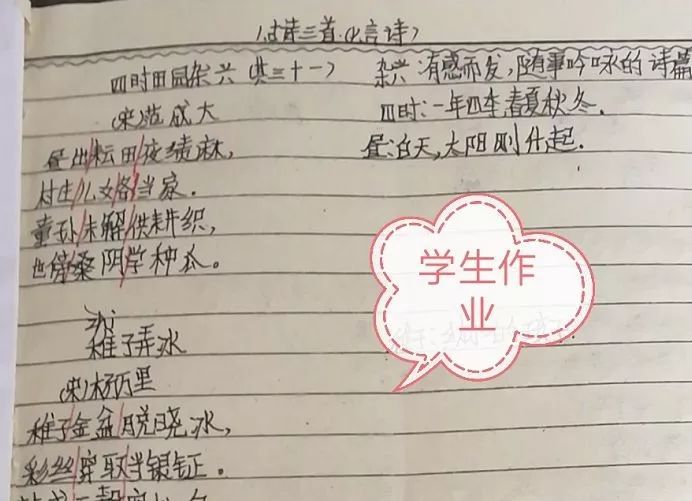 1.古诗三首(七言诗)
四时田园杂兴(其三十一)
(宋)范成大
昼出/耘田/夜绩麻,
村庄/儿女/各当家.
童孙/未解/供耕织,
也傍桑阴/学种瓜。
稚子弄冰
(宋)杨万里
稚子/金盆/脱晓冰,
彩丝/穿取/当银钲.
杂兴:有感而发,随事吟咏的诗篇
四时:一年四季春夏秋冬.
昼:白天,太阳刚升起.
学生作
业